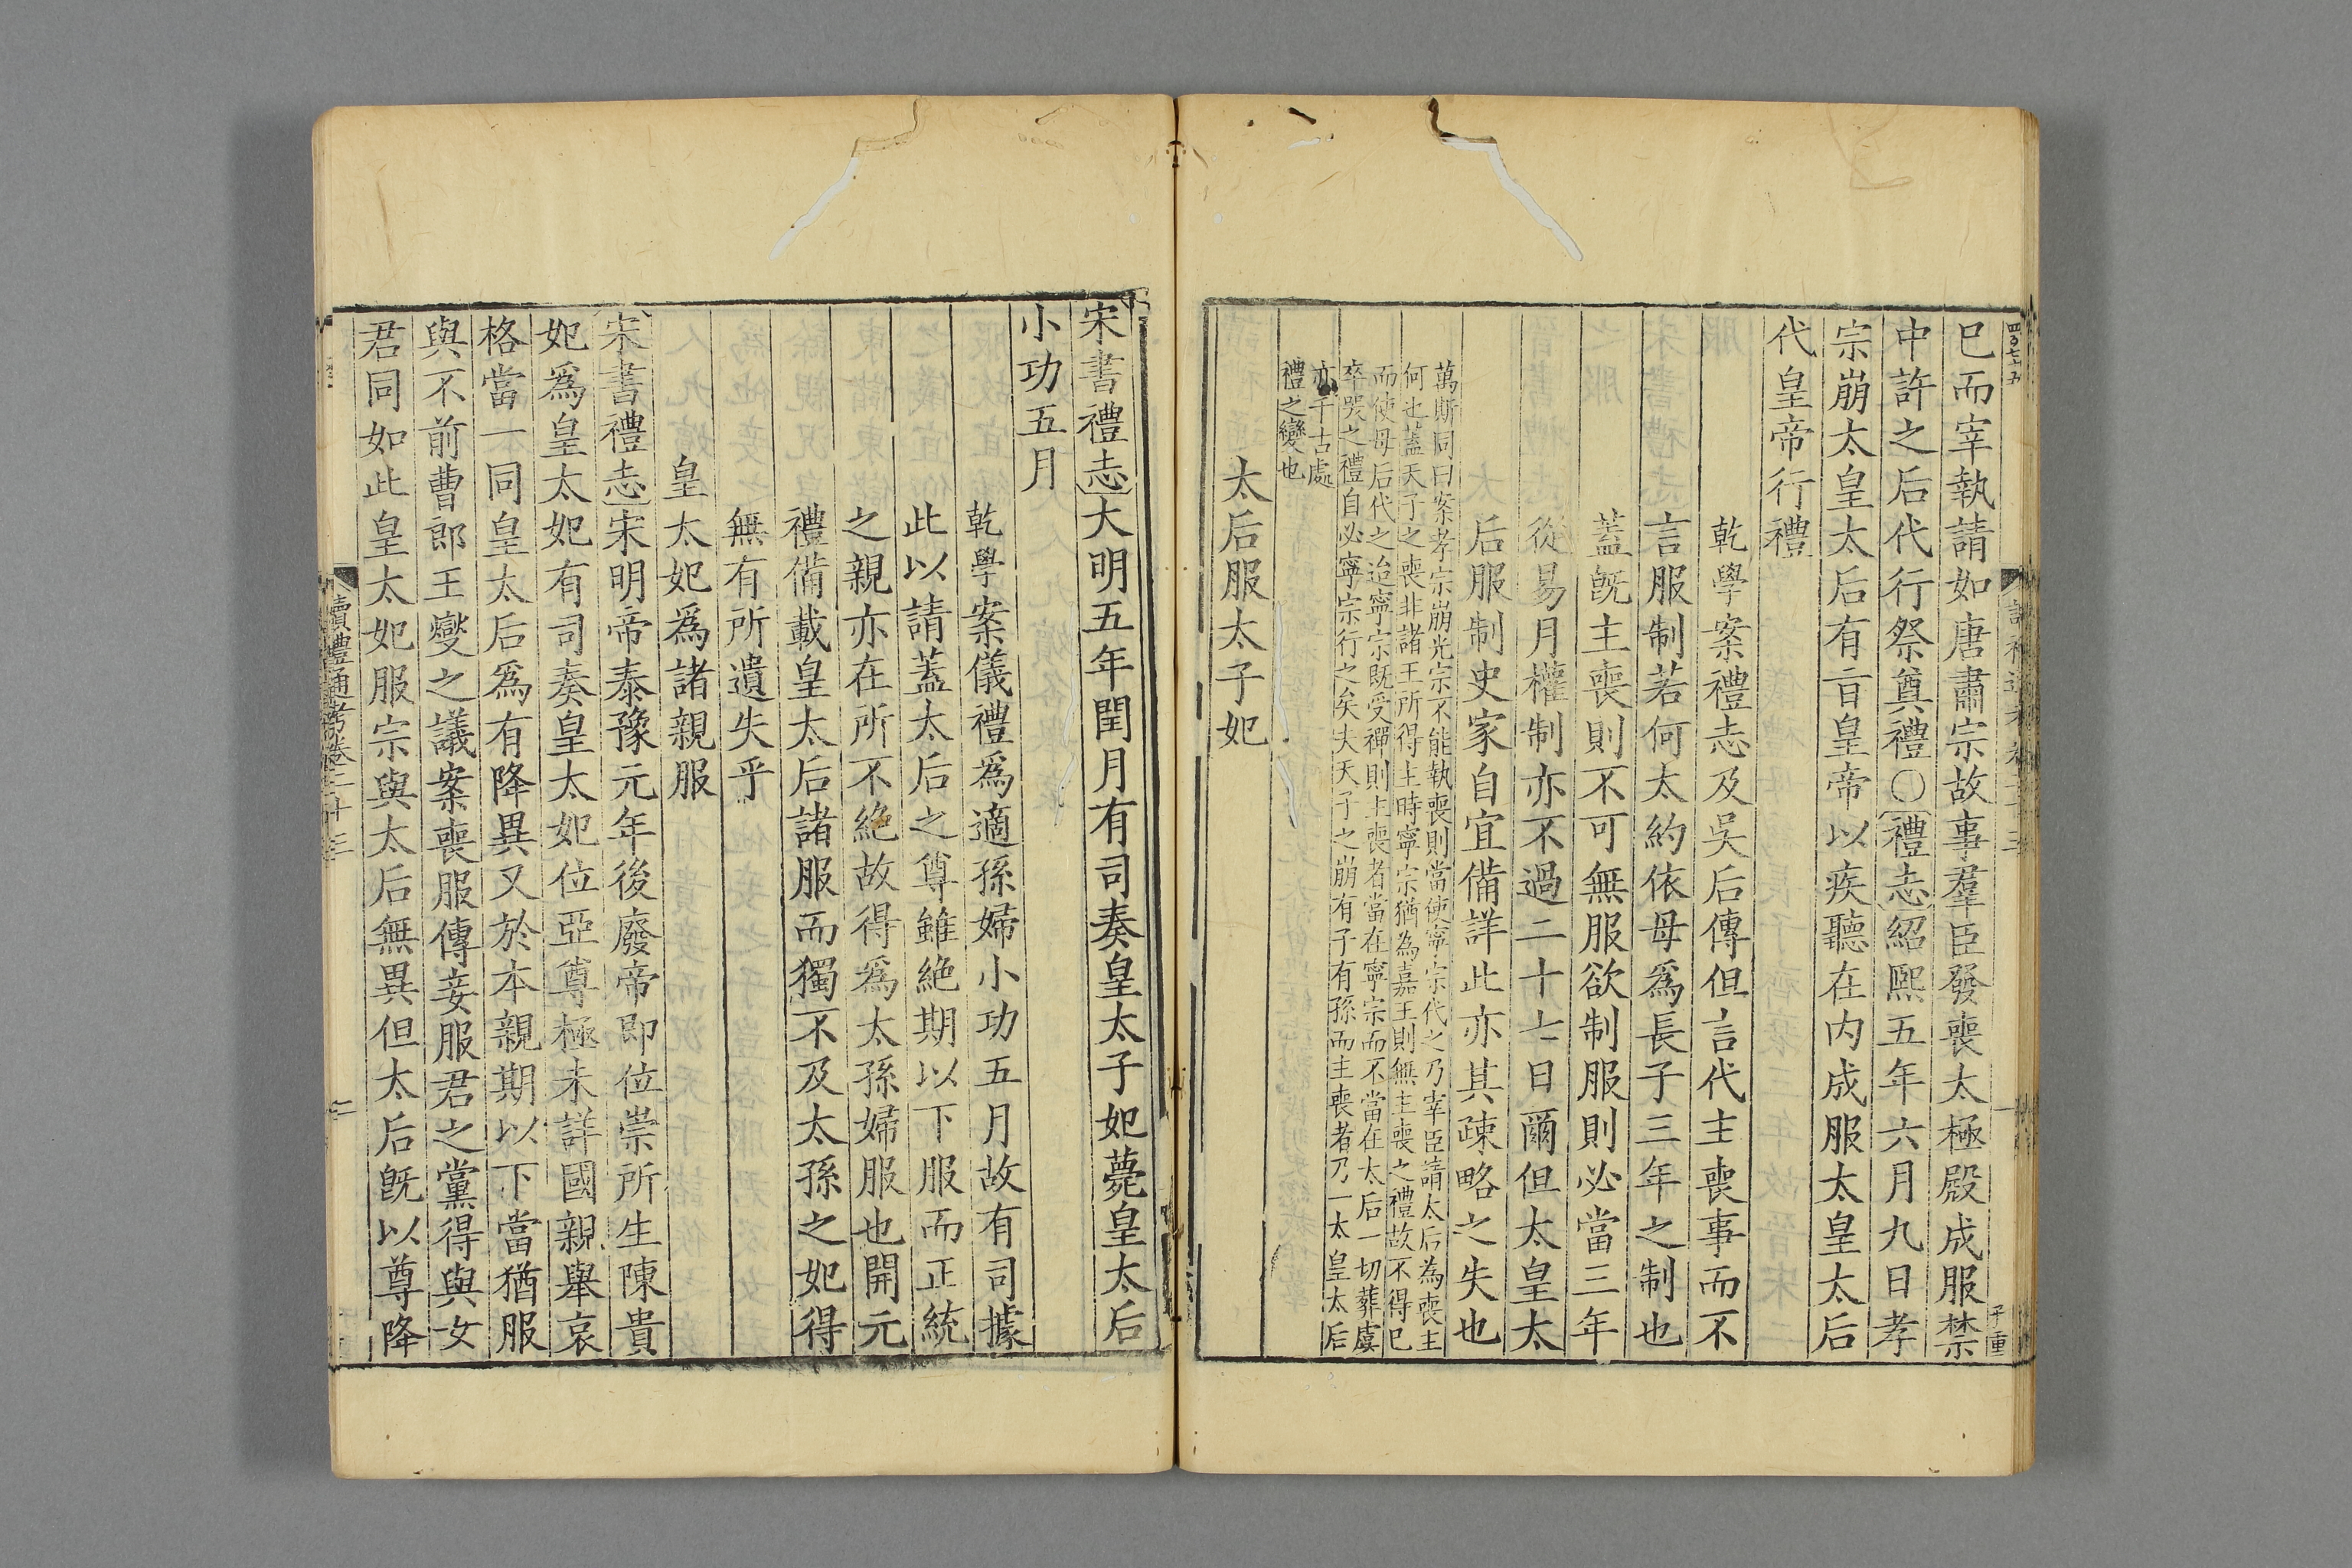 已而宰執請如唐肅宗故事羣臣發喪太極殿成服禁
中許之后代行祭奠禮〇禮志紹熙五年六月九日孝
宗崩太皇太后有旨皇帝以疾聽在内成服太皇太后
代皇帝行禮
乾學案禮志及吳后傳但言代主喪事而不
言服制若何太約依母爲長子三年之制也
蓋旣主喪則不可無服欲制服則必當三年
從易月權制亦不過二十七日爾但太皇太
后服制史家自宜備詳此亦其疎略之失也
萬斯同曰案孝宗崩光宗不能執喪則當使寧宗代之乃宰臣請太后為喪主
何也蓋天子之喪非諸王所得主時寧宗猶為嘉王則無主喪之禮故不得已
而使母后代之迨寧宗既受禪則主喪者當在寧宗而不當在太后一切葬虞
卒哭之禮自必寧宗行之矣夫天子之崩有子有孫而主喪者乃一太皇太后
亦千古處
禮之變也
太后服太子妃
宋書禮志大明五年閏月有司奏皇太子妃薨皇太后
小功五月
乾學案儀禮爲適孫婦小功五月故有司據
此以請蓋太后之尊雖絶期以下服而正統
之親亦在所不絶故得爲太孫婦服也開元
禮備載皇太后諸服而獨不及太孫之妃得
無有所遺失乎
皇太妃爲諸親服
宋書禮志宋明帝泰豫元年後廢帝即位崇所生陳貴
妃爲皇太妃有司奏皇太妃位亞尊極未詳國親舉哀
格當一同皇太后爲有降異又於本親期以下當猶服
與不前曹郎王燮之議案喪服傳妾服君之黨得與女
君同如此皇太妃服宗與太后無異但太后旣以尊降
讀禮通考卷二十三
二